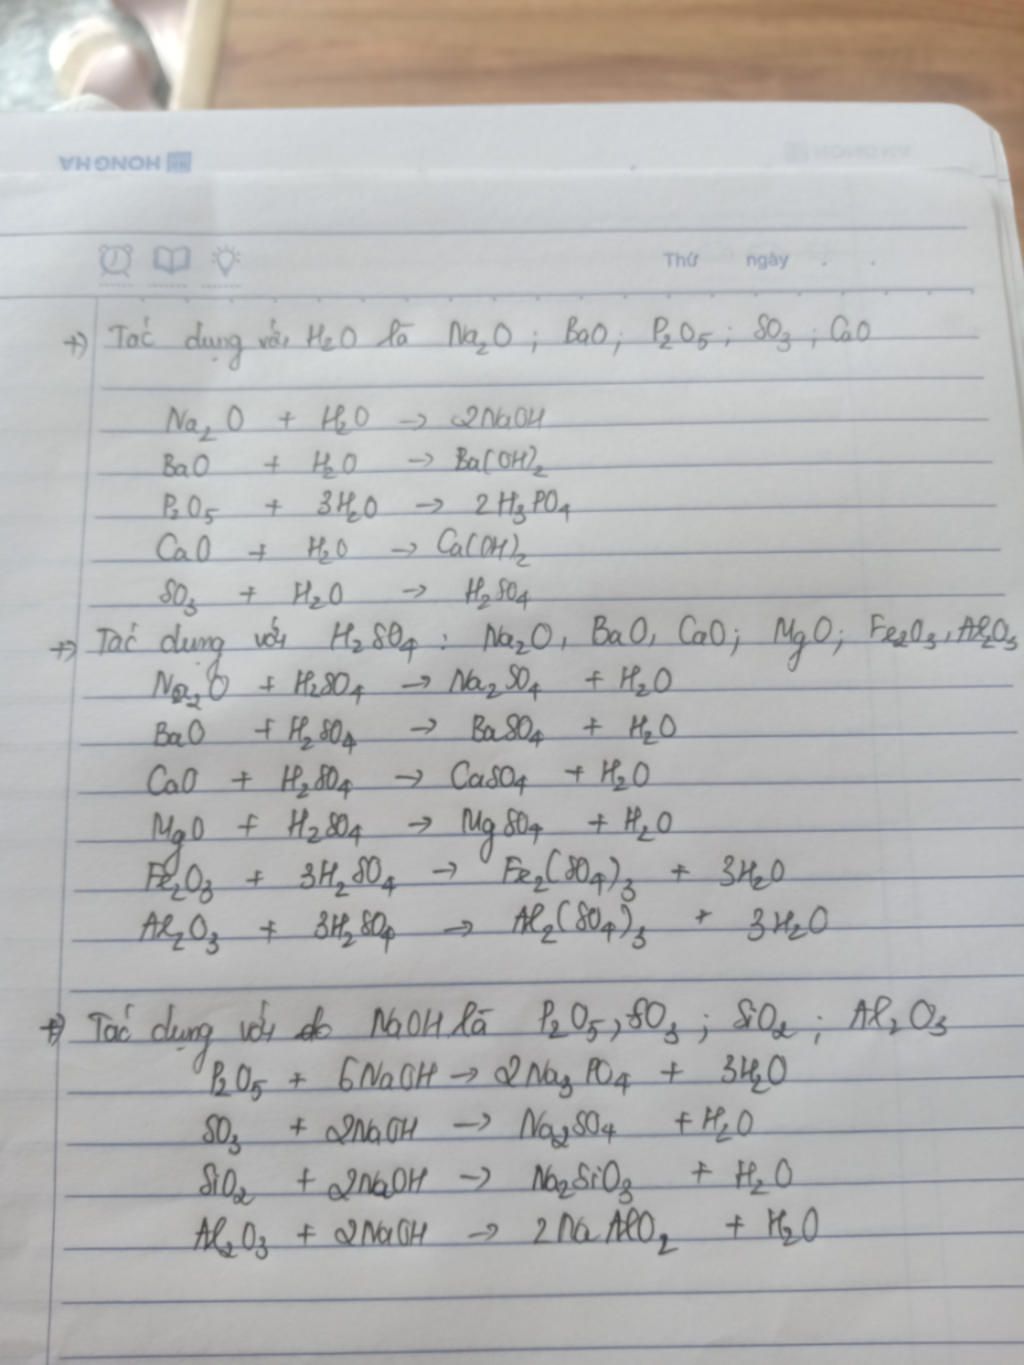 HONG HA
Thứ ngày . .
+) Tác dụng với H₂O là Na₂O ; BaO ; P₂O₅ ; SO₃ ; CaO
Na₂O + H₂O → 2NaOH
BaO + H₂O → Ba(OH)₂
P₂O₅ + 3H₂O → 2H₃PO₄
CaO + H₂O → Ca(OH)₂
SO₃ + H₂O → H₂SO₄
+) Tác dụng với H₂SO₄ : Na₂O, BaO, CaO; MgO; Fe₂O₃, Al₂O₃
Na₂O + H₂SO₄ → Na₂SO₄ + H₂O
BaO + H₂SO₄ → BaSO₄ + H₂O
CaO + H₂SO₄ → CaSO₄ + H₂O
MgO + H₂SO₄ → MgSO₄ + H₂O
Fe₂O₃ + 3H₂SO₄ → Fe₂(SO₄)₃ + 3H₂O
Al₂O₃ + 3H₂SO₄ → Al₂(SO₄)₃ + 3H₂O
+) Tác dụng với NaOH là P₂O₅, SO₃ ; SiO₂ ; Al₂O₃
P₂O₅ + 6NaOH → 2Na₃PO₄ + 3H₂O
SO₃ + 2NaOH → Na₂SO₄ + H₂O
SiO₂ + 2NaOH → Na₂SiO₃ + H₂O
Al₂O₃ + 2NaOH → 2NaAlO₂ + H₂O